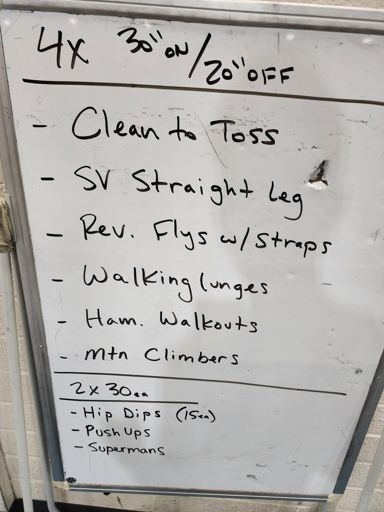 4x 30" ON/20" OFF
- Clean to Toss
- SV Straight Leg
- Rev. Flys w/ Straps
- Walking lunges
- Ham. Walkouts
- Mtn Climbers
2 x 30ea
- Hip Dips (15ea)
- Push Ups
- Supermans